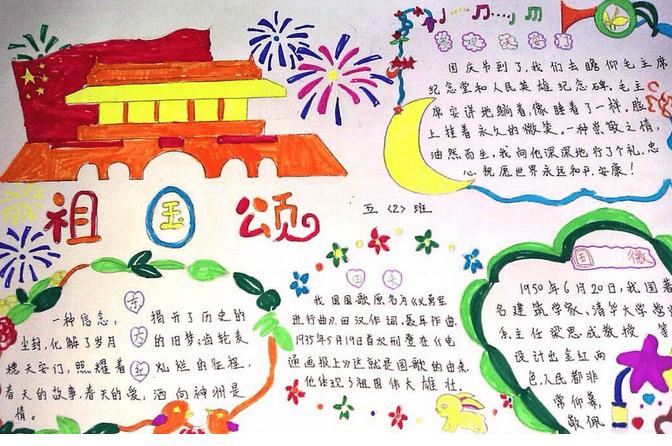 国庆节到了,我们去瞻仰毛主席
纪念堂和人民英雄纪念碑。毛主
席安详地躺着,像睡着了一样。脸
上挂着永久的微笑。一种崇敬之情,
油然而生,我向他深深地行了个礼。忠
心祝愿世界永远和平、安康!
祖国颂
五〈2〉班
一种信念, 东 揭开了历史的
尘封,化解了岁月 方 的旧梦;齿轮麦
穗天安门,照耀着 红 灿烂的征程,
春天的故事,春天的爱,洒向神州是
情。
由来
我国国歌原名为《义勇军
进行曲》,田汉作词,聂耳作曲
1935年5月19日首次刊登在《电
通画报上》这就是国歌的由来
他体现了祖国伟大雄壮.
国徽
1950年6月20日,我国著
名建筑学家、清华大学
系主任梁思成教授
设计出金红两
色,人民都非
常仰慕,
敬佩